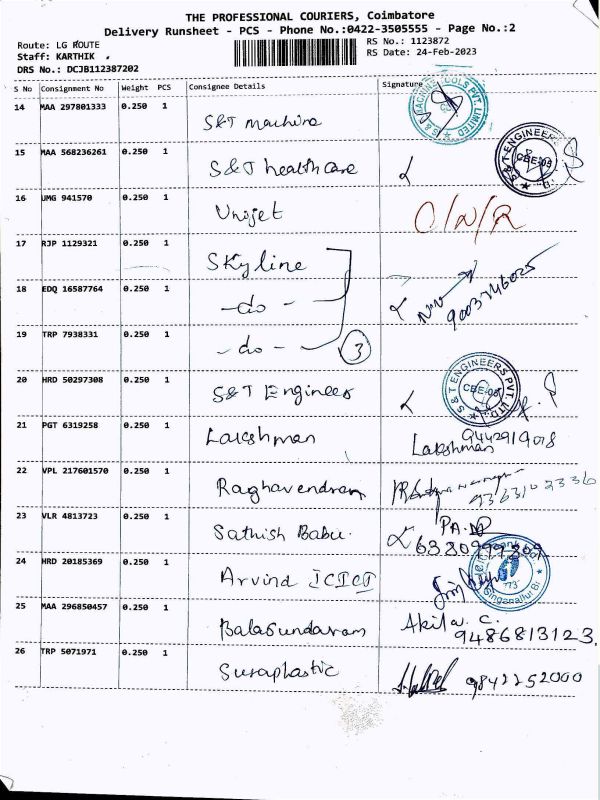 THE PROFESSIONAL COURIERS, Coimbatore
Delivery Runsheet - PCS - Phone No.:0422-3505555 - Page No.:2
Route: LG ROUTE
RS No.: 1123872
Staff: KARTHIK
RS Date: 24-Feb-2023
DRS No.: DCJB112387202
S No Consignment No Weight PCS Consignee Details Signature
14 MAA 297801333 0.250 1 S&T machine
15 MAA 568236261 0.250 1 S&T healthcare
S & T ENGINEERS CBE-05
16 UMG 941570 0.250 1 Unijet O/N/R
17 RJP 1129321 0.250 1 Skyline
18 EDQ 16587764 0.250 1 -do- 9003746025
19 TRP 7938331 0.250 1 -do- 3
20 HRD 50297308 0.250 1 S&T Engineer
S & T ENGINEERS PVT. LTD. CBE-05
21 PGT 6319258 0.250 1 Lakshman Lakshman 9442919018
22 VPL 217601570 0.250 1 Raghavendram
23 VLR 4813723 0.250 1 Sathish Babu.
24 HRD 20185369 0.250 1 Arvind ICICI
Singanallur Br
25 MAA 296850457 0.250 1 Balasundaram Akila. C.
9486813123.
26 TRP 5071971 0.250 1 Suraplastic 9842252000